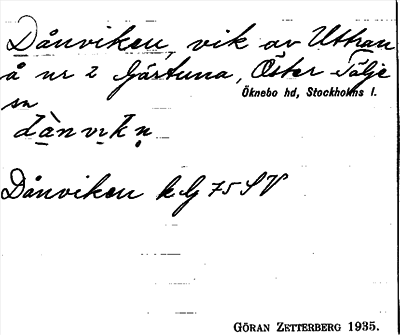 Dånviken, vik av Uttran
å nr 2 Gärtuna, Öster-Tälje
sn Öknebo hd, Stockholms l.
dànvıkn̥
Dånviken k G 75 SV
GÖRAN ZETTERBERG 1935.